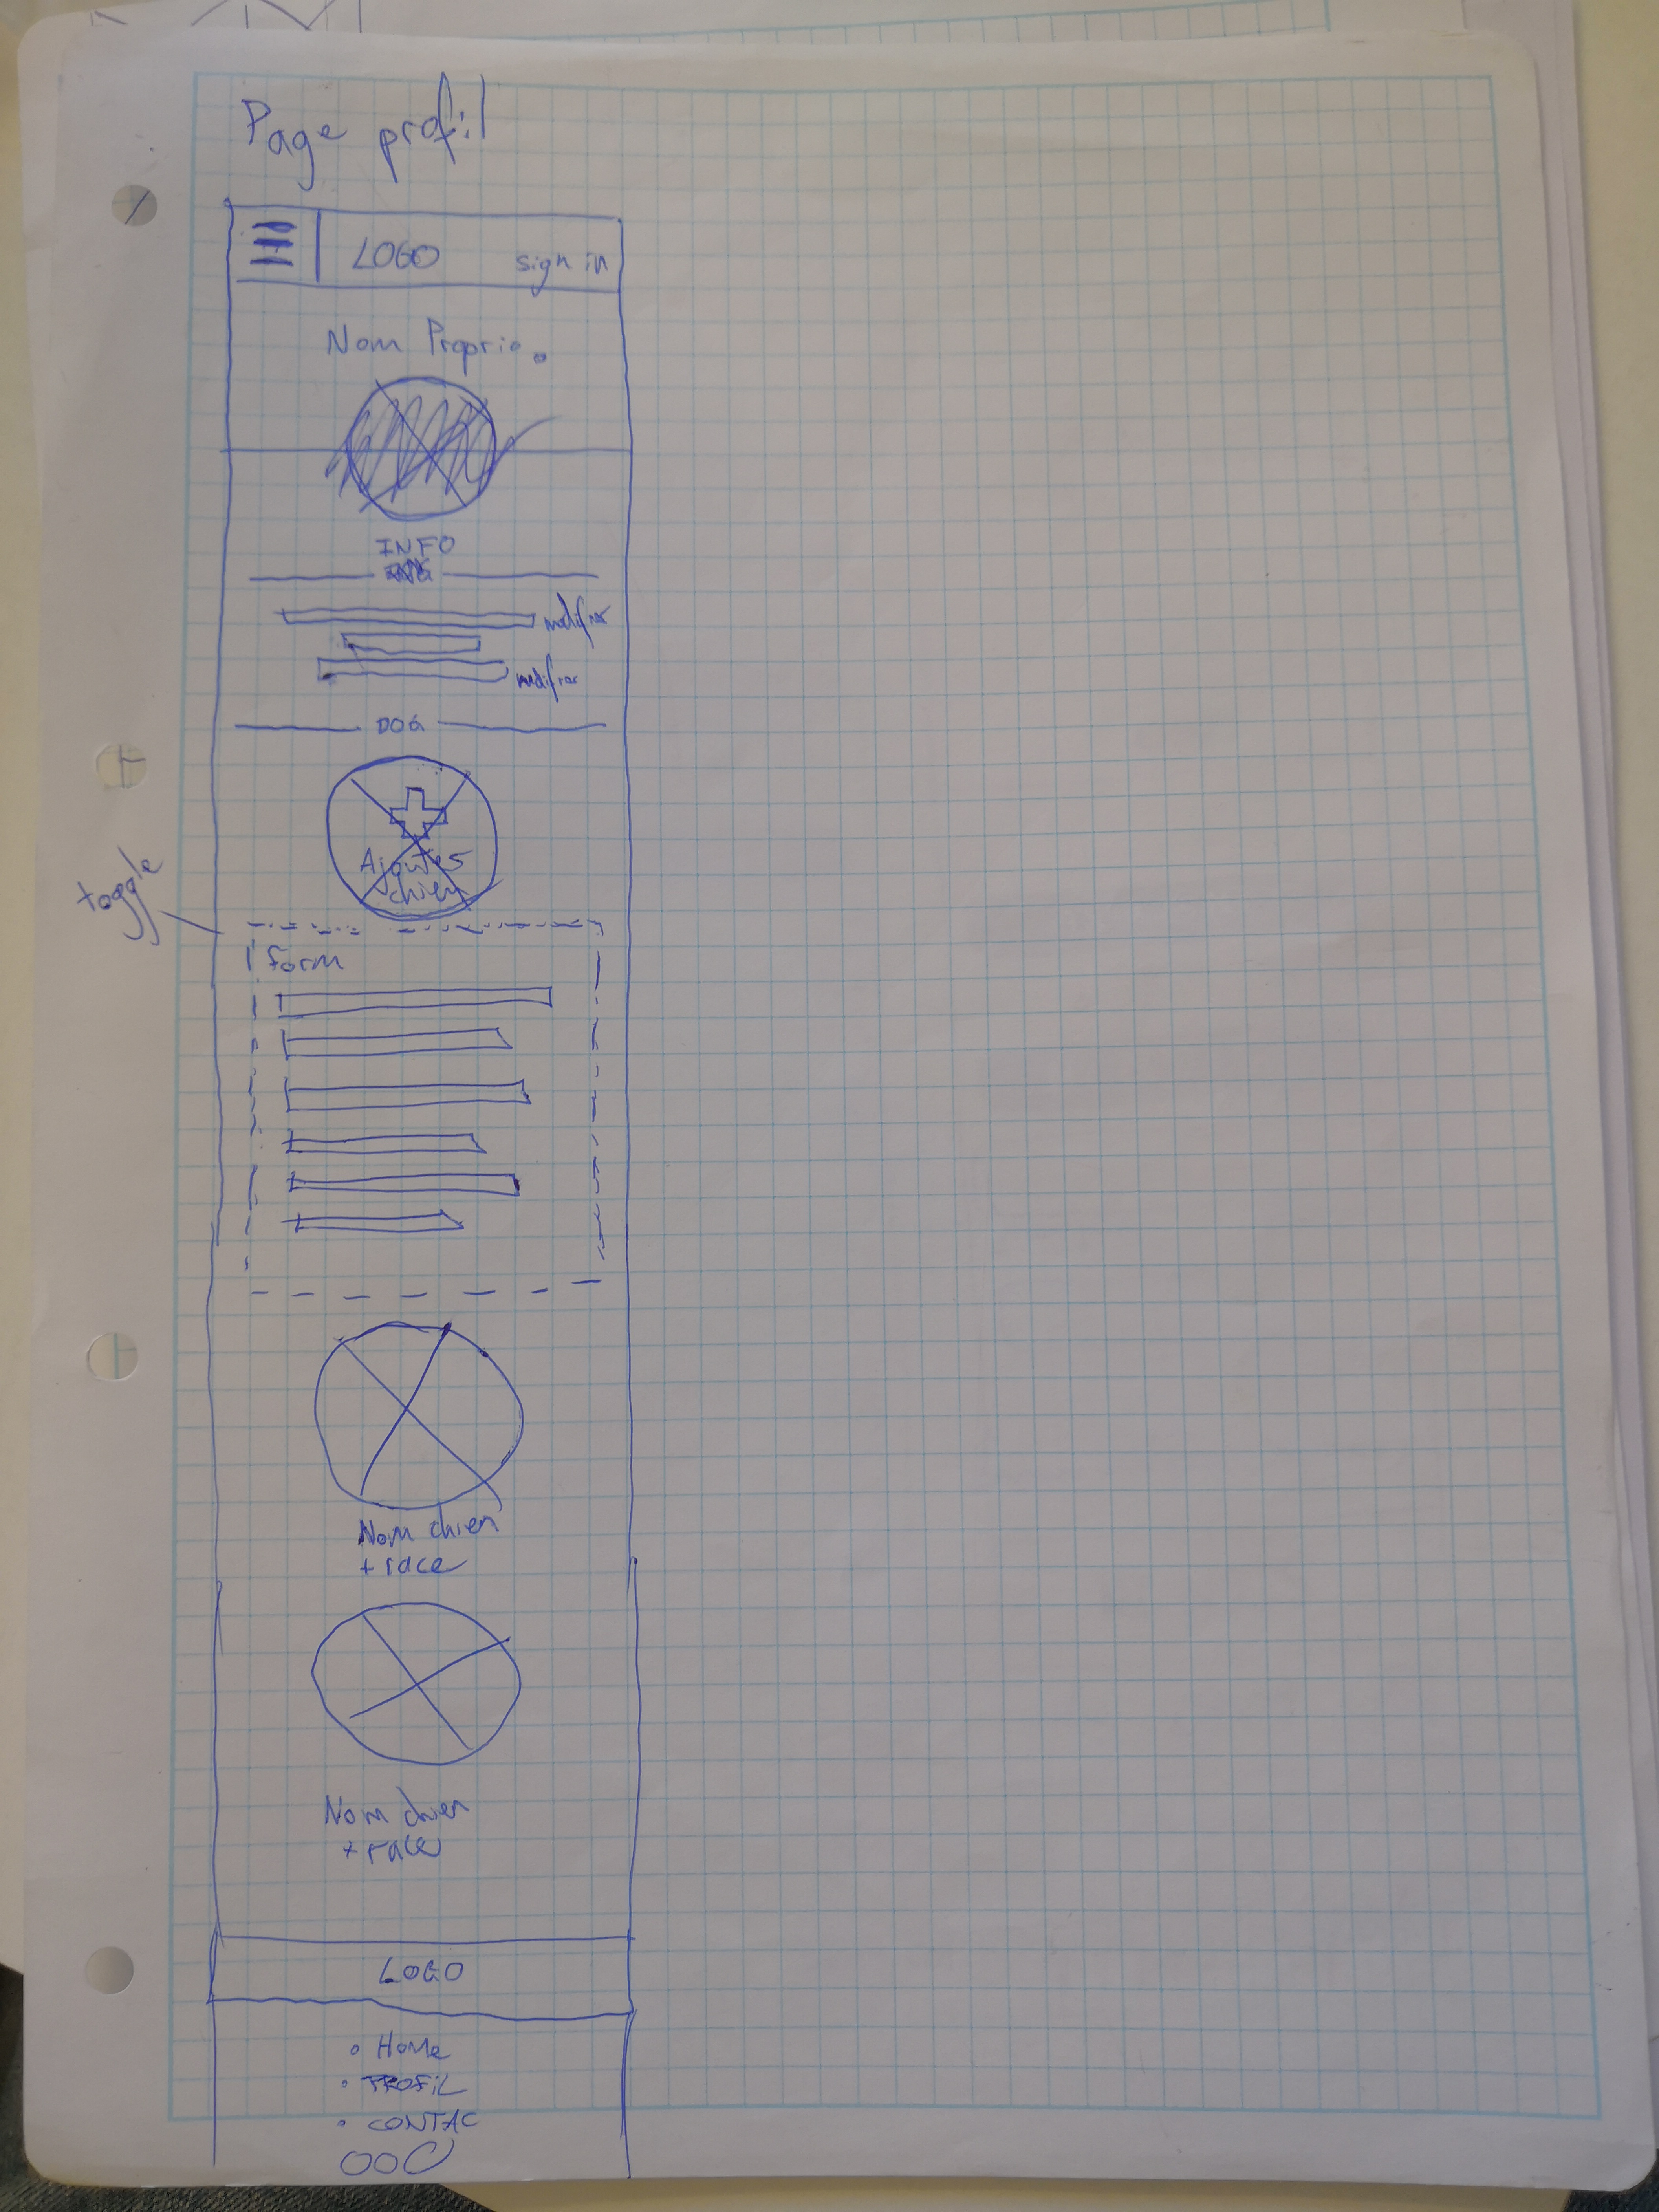 Page profil
LOGO sign in
Nom Proprio.
INFO
modifier
modifier
DOG
Ajouter
chien
toggle
form
Nom chien
+ race
Nom chien
+ race
LOGO
• Home
• PROFIL
• CONTAC